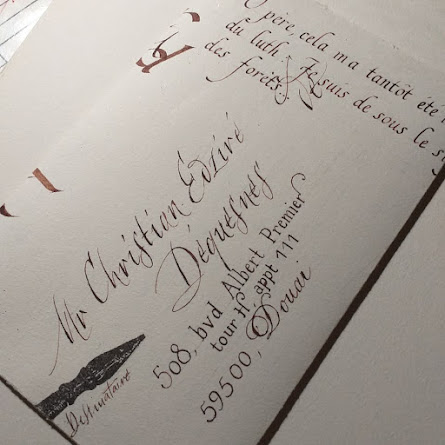 père, cela m a tantôt été
du luth. Je suis de sous le
des forêts...
Mr Christian Edziré
Dequesnes
508, bvd Albert Premier
tour H appt 111
59500, Douai
Destinataire